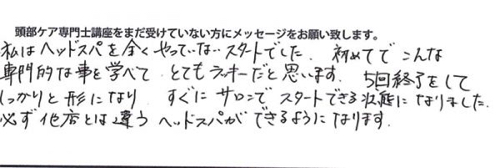 頭部ケア専門士講座をまだ受けていない方にメッセージをお願い致します。
私はヘッドスパを全くやっていないスタートでした。初めてでこんな
専門的な事を学べて とてもラッキーだと思います。5回終了をして
しっかりと形になり すぐに サロンで スタートできる状態になりました。
必ず他店とは違う ヘッドスパができるようになります。